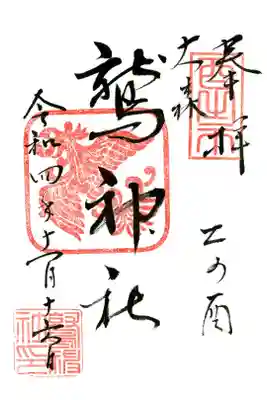 奉拝
大森
二の酉
鷲神社
令和四年十一月十六日